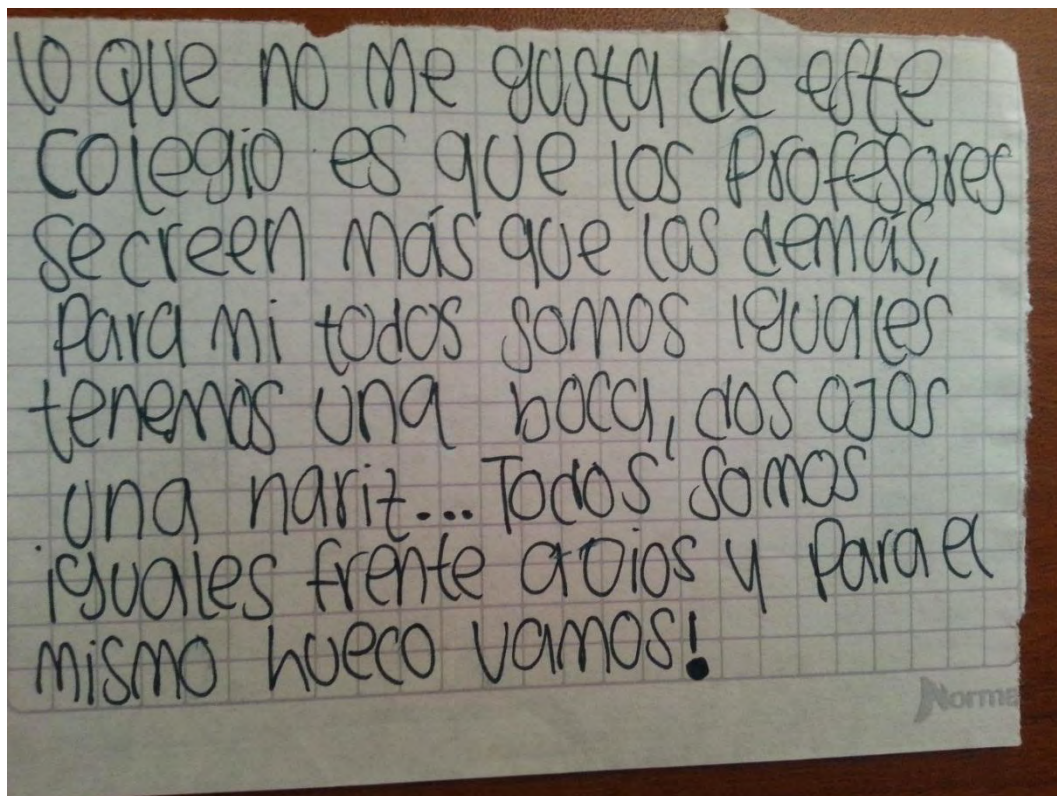 lo que no me gusta de este
colegio es que los profesores
se creen más que los demás,
para mi todos somos iguales
tenemos una boca, dos ojos
una nariz... Todos somos
iguales frente a Dios y para el
mismo hueco vamos!
Norma